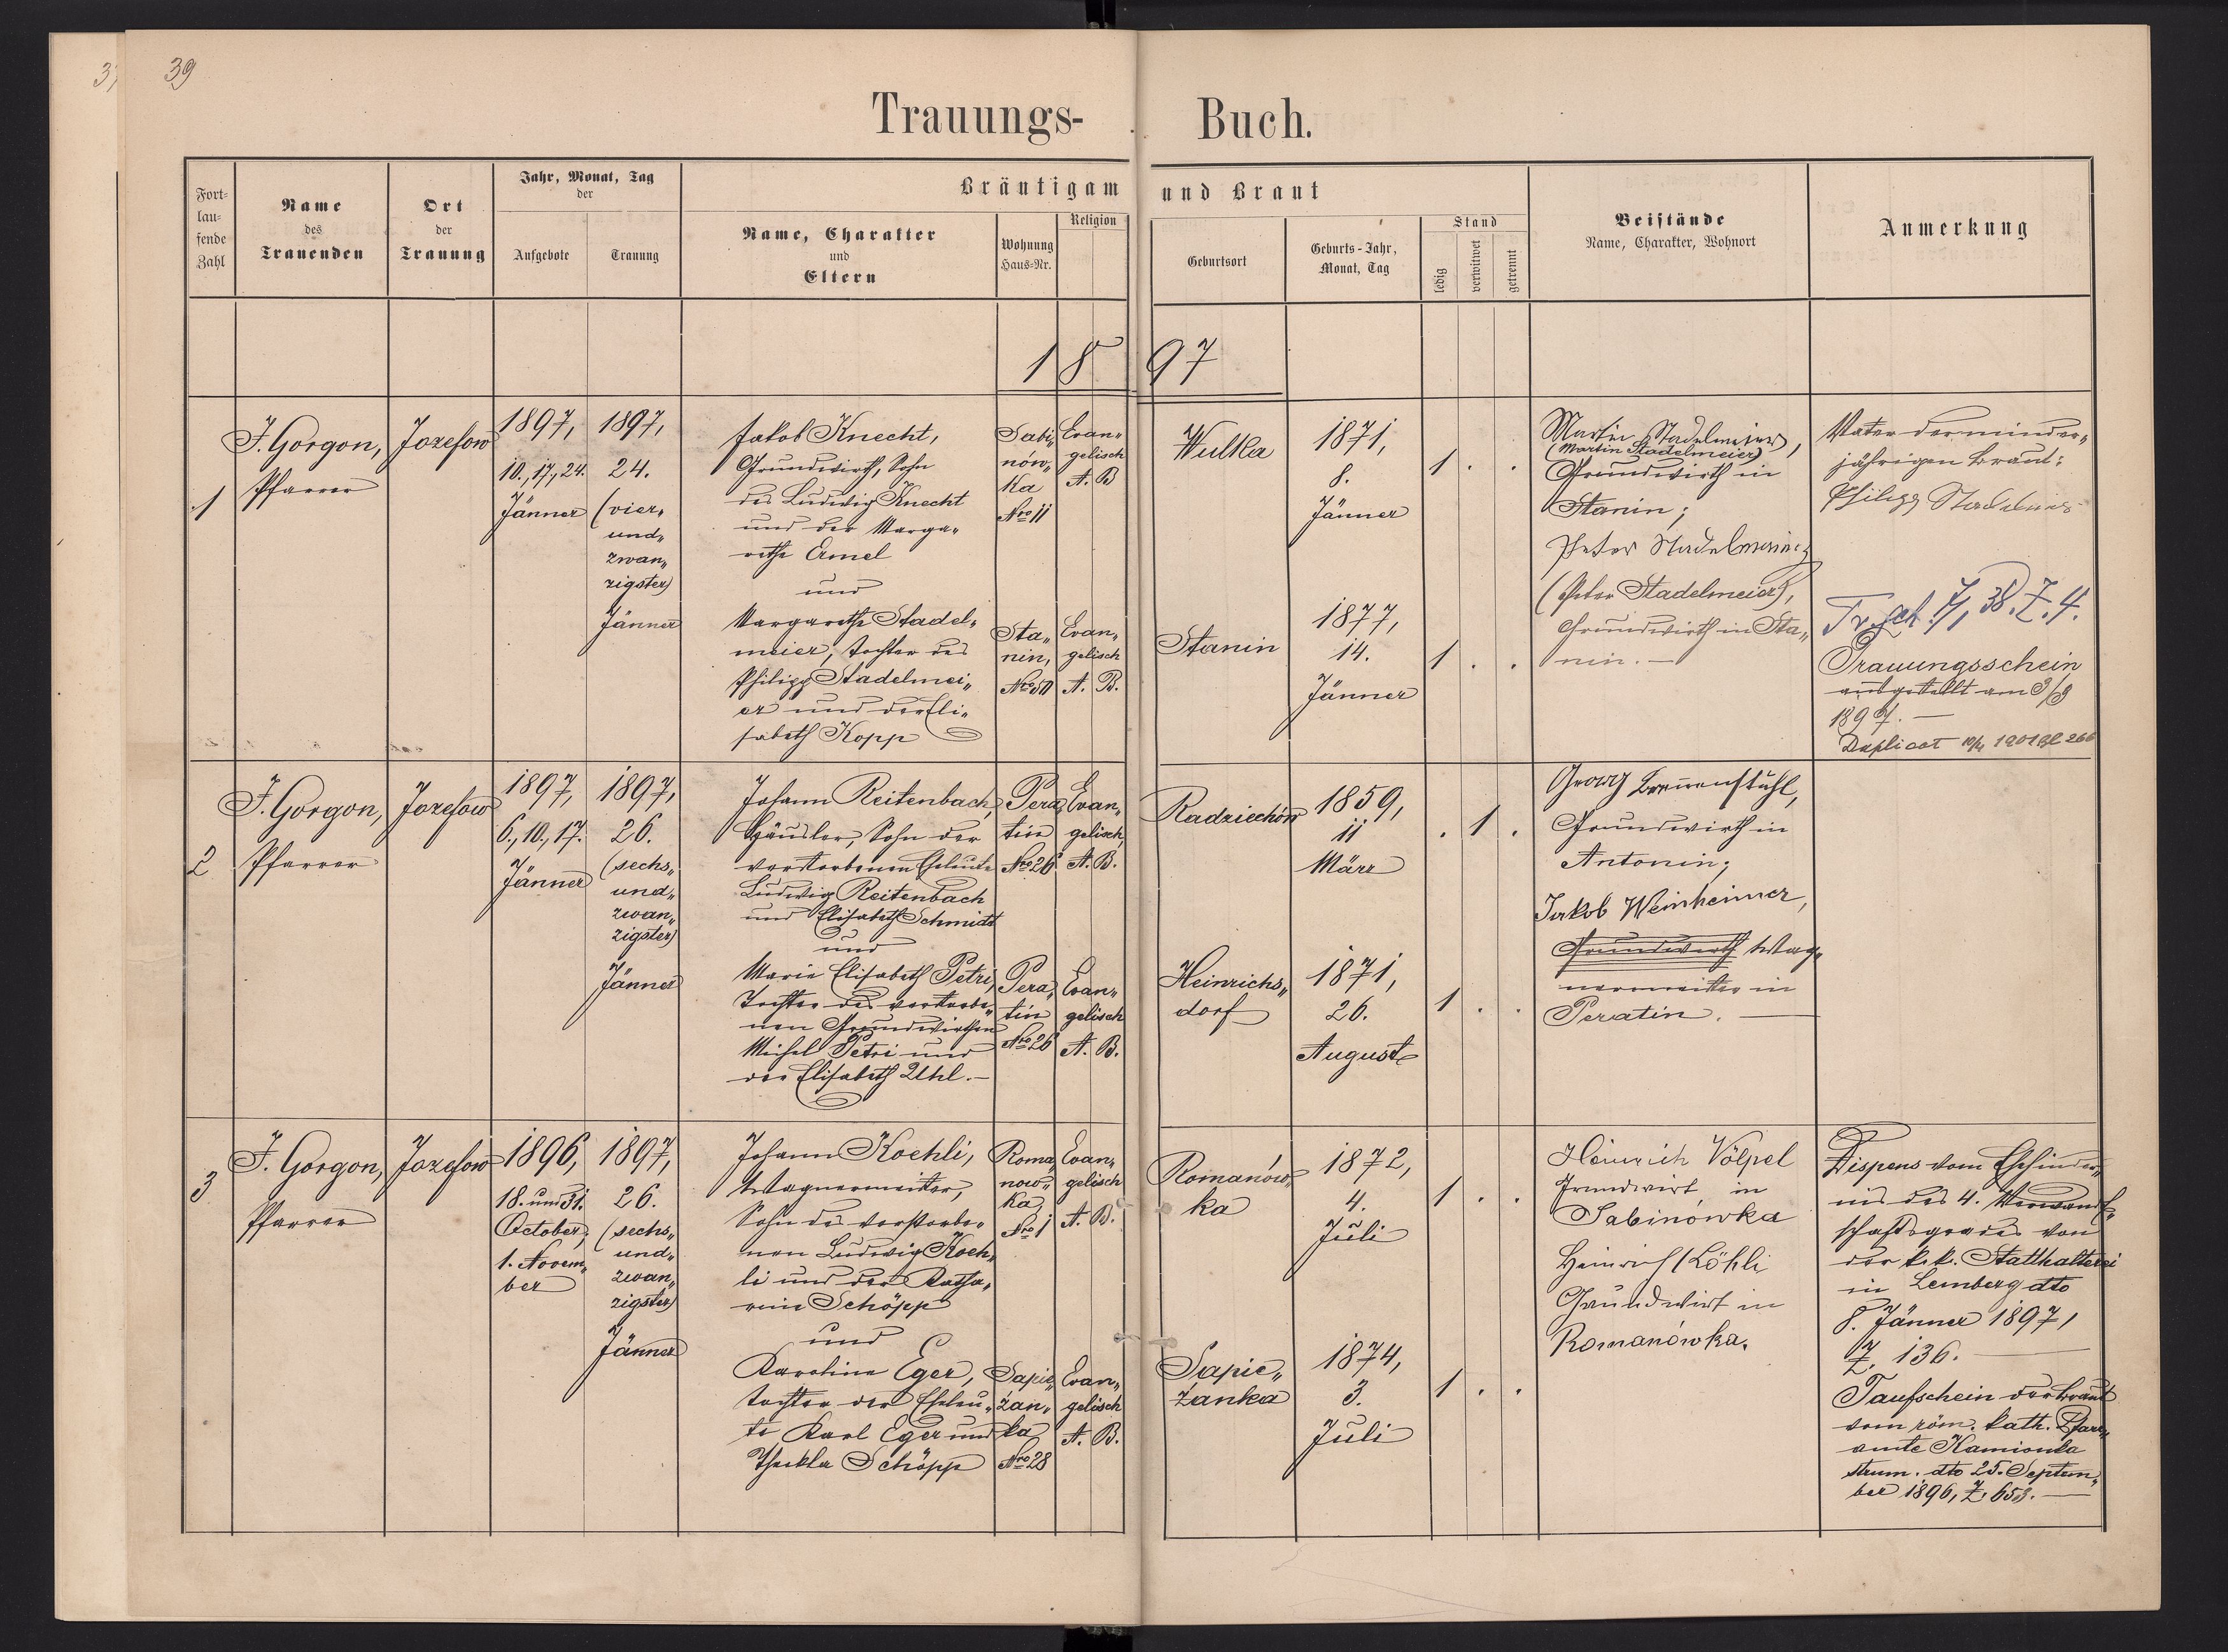 39
Trauungs-Buch.
Fort-
lau-
fende
Zahl
Name
des
Trauenden
Ort
der
Trauung
Jahr, Monat, Tag
der
Aufgebote
Trauung
Bräutigam und Braut
Name, Charakter
und
Eltern
Wohnung
Haus-Nr.
Religion
Geburtsort
Geburts-Jahr,
Monat, Tag
Stand
ledig
verwitwet
getrennt
Beistände
Name, Charakter, Wohnort
Anmerkung
1897
1
J. Gorgon,
Pfarrer
Jozefow
1897,
10., 17., 24.
Jänner
1897,
24.
(vier„
und„
zwan„
zigster)
Jänner
Jakob Knecht,
Grundwirth, Sohn
des Ludwig Knecht
und der Marga„
rethe Ermel
und
Margarethe Stadel„
meier, Tochter des
Philipp Stadelmei„
er und der Eli„
sabeth Kopp
Sabi„
nów„
ka
Nro 11
Evan„
gelisch
A. B
Sta„
nin,
Nro 50
Evan„
gelisch
A. B.
Wulka
1871,
8.
Jänner
1 . .
Stanin
1877,
14.
Jänner
1 . .
Martin Stadelmeier,
(Martin Stadelmeier)
Grundwirth in
Stanin;
Peter Stadelmeier
(Peter Stadelmeier),
Grundwirth in Sta„
nin. —
Vater der minder„
jährigen Braut:
Philipp Stadelmeier
Trauungsschein
ausgestellt am 3/9
1897. —
Duplicat 10/4 1901
2
J. Gorgon,
Pfarrer
Jozefow
1897,
6., 10., 17.
Jänner
1897,
26.
(sechs„
und„
zwan„
zigster)
Jänner
Johann Reitenbach,
Häusler, Sohn der
verstorbenen Eheleute
Ludwig Reitenbach
und Elisabeth Schmidt
und
Marie Elisabeth Petri,
Tochter des verstorbe„
nen Grundwirthen
Michel Petri und
der Elisabeth Uhl. —
Pera„
tin
Nro 26
Evan„
gelisch,
A. B.
Pera„
tin
Nro 26
Evan„
gelisch
A. B.
Radziechów
1859,
11
März
. 1 .
Heinrichs„
dorf
1871,
26.
August
1 . .
Georg Brennenstuhl,
Grundwirth in
Antonin;
Jakob Weinheimer,
Grundwirth Wag„
nermeister in
Peratin. —
3
J. Gorgon,
Pfarrer
Jozefow
1896,
18. und 31.
October,
1. Novem„
ber
1897,
26.
(sechs„
und„
zwan„
zigster)
Jänner
Johann Koehli,
Wagnermeister,
Sohn des verstorbe„
nen Ludwig Koeh„
li und der Katha„
rine Schöpp
und
Karoline Eger,
Tochter der Eheleu„
te Karl Eger und
Thekla Schöpp
Roma„
now„
ka
Nro 1
Evan„
gelisch
A. B.
Sapie„
żan„
ka
Nro 28
Evan„
gelisch
A. B.
Romanów„
ka
1872,
4.
Juli
1 . .
Sapie„
żanka
1874,
3.
Juli
1 . .
Heinrich Völpel
Grundwirt in
Sabinówka
Heinrich Köhli
Grundwirt in
Romanówka.
Dispens vom Ehehinder„
nis des 4. Verwandt„
schaftsgrades von
der k. k. Statthalterei
in Lemberg dto
8. Jänner 1897,
Z. 136. —
Taufschein der Braut
vom röm. kath. Pfarr„
amte Kamionka
strum. dto 25. Septem„
ber 1896, Z. 653. —